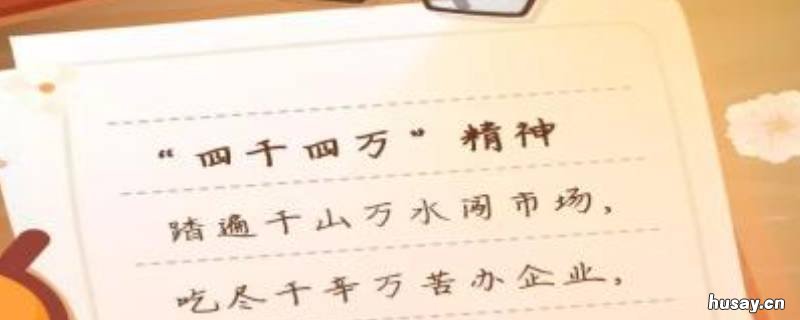 “四千四万”精神
踏遍千山万水闯市场，
吃尽千辛万苦办企业，
husay.cn